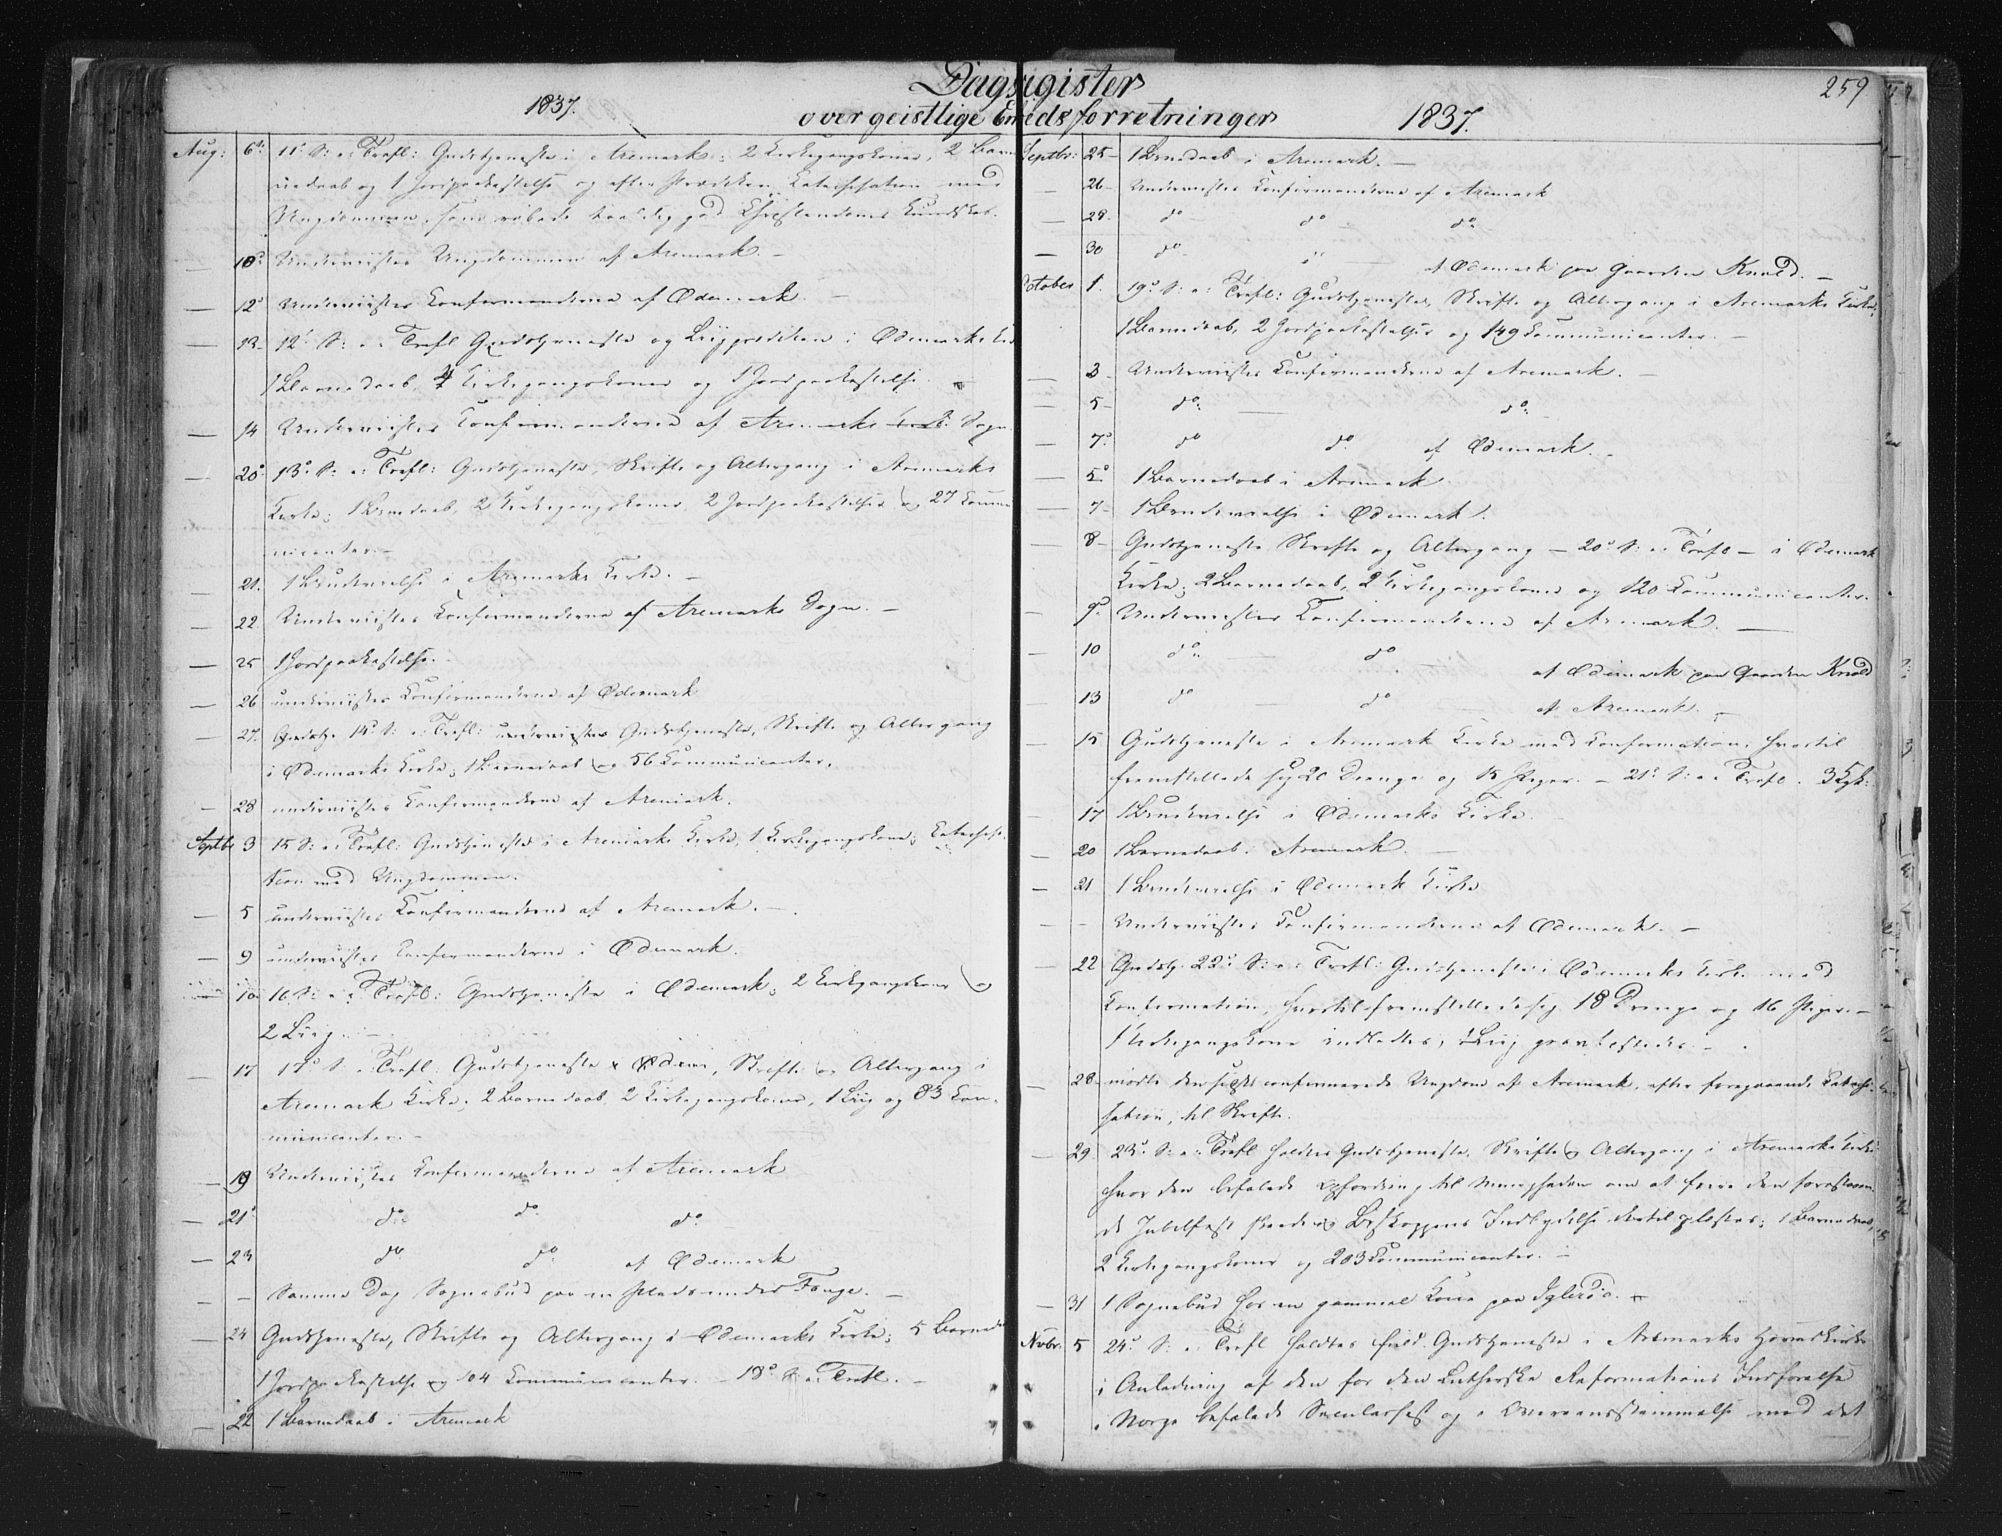 Dagregister
259
1837.
over geistlige Embedsforretninger
1837.
Aug: 6te 11 S: e: Trefl: Gudstjeneste i Aremark; 2 Kirkegangskoner, 2 Barne
nedaab og 1 Jordpaakastelse og efter Prædiken Katechisation med
Ungdommen, som røbede god Christendoms Kundskab.
— 10 Underviistes Ungdommen af Aremark. —
— 12 Underviistes Confirmanderne af Ødemark. —
— 13 12 S: e: Trefl Gudstjeneste og Liigprediken i Ødemarks
1 Barnedaab, 4 Kirkegangskoner og 1 Jordpaakastelse.
— 14 Underviistes Confirmanderne af Aremarks Sogn
20 13 S: e: Trefl: Gudstjeneste, Skrifte og Altergang i Aremarks
Kirke; 1 Barnedaab, 2 Kirkegangskoner, 2 Jordpaakastelser og 27 Commu
nicanter. —
— 21. 1 Brudevielse i Aremarks Kirke. —
— 22. Underviistes Confirmanderne af Aremarks Sogn. —
— 25 1 Jordpaakastelse. —
— 26 underviistes Confirmanderne af Ødemark
— 27. 14 S: e: Trefl: Gudstjeneste, Skrifte og Altergang
i Ødemarks Kirke; 1 Barnedaab og 56 Communicanter.
— 28 underviistes Confirmanderne af Aremark.
Septb: 3 15 S: e: Trefl: Gudstjeneste i Aremarks Kirke, 1 Kirkegangskone; Catechisa
tion med Ungdommen.
— 5 underviistes Confirmanderne af Aremark. —
— 9 underviistes Confirmanderne i Ødemark.
— 10 16 S: e: Trefl: Gudstjeneste i Ødemark; 2 Kirkegangskoner og
2 Liig. —
— 17 17 S. e. Trefl: Gudstjeneste, Skrifte og Altergang i
Aremark Kirke; 2 Barnedaab, 2 Kirkegangskoner, 1 Liig og 83 Com-
municanter. —
— 19 Underviistes Confirmanderne af Aremark
— 21 do do do
— 23 do do af Ødemark
— Samme Dag Sognebud paa en Plads under Fange. —
— 24 Gudstjeneste, Skrifte og Altergang i Ødemarks Kirke; 5 Barned
1 Jordpaakastelse og 104 Communicanter. — 18 S e: Trefl. —
— 22 1 Barnedaab i Aremark
Septbr: 25 1 Barnedaab i Aremark. —
— 26 Underviistes Confirmanderne af Aremark
— 28 do do do
— 30 do " af Ødemark paa Gaarden Knold. —
October 1. 19 S: e: Trefl: Gudstjeneste, Skrifte og Altergang i Aremarks Kirke,
1 Barnedaab, 2 Jordpaakastelser og 149 Communicanter. —
— 3 Underviistes Confirmanderne af Aremark. —
— 5 do: do:
— 7 do do af Ødemark. —
— 5 1 Barnedaab i Aremark
— 7 1 Brudevielse i Ødemark.
— 8 Gudstjeneste Skrifte og Altergang — 20 S: e: Trefl — i Ødemark
Kirke; 2 Barnedaab, 2 Kirkegangskoner og 120 Communicanter.
— 9 Underviistes Confirmanderne af Aremark. —
— 10 do do af Ødemark paa Gaarden Knold
— 13 do do af Aremark.
— 15 Gudstjeneste i Aremark Kirke med Confirmation, hvortil
fremstillede sig 20 Drenge og 15 Piger. — 21 S: e: Trefl. 3 Kgk:
— 17 1 Brudevielse i Ødemarks Kirke.
— 20 1 Barnedaab. Aremark. —
— 21 1 Brudevielse i Ødemark Kirke
— - Underviistes Confirmanderne af Ødemark. —
— 22 22 S: e: Trefl: Gudstjeneste i Ødemarks Kirke med
Confirmation, hvortil fremstillede sig 18 Drenge og 16 Piger. —
1 Kirkegangskone indledtes, 1 Liig gravfæstedes. —
— 28 mødte den confirmerede Ungdom af Aremark, efter foregaaende Catechi-
sation, til Skrifte.
— 29 23 S: e: Trefl holdtes Gudstjeneste, Skrifte og Altergang i Aremarks Kirke
hvor den befalede Opfordring til Menigheden om at feire den forestaaen
de Jubelfest skede og Biskoppens Indbydelse dertil oplæstes; 1 Barnedaab,
2 Kirkegangskoner og 203 Communicanter. —
— 31 1 Sognebud hos en gammel Kone paa
Novbr. 5 24 S: e: Trefl holdtes Gudstjeneste i Aremarks Hovedkirke
i Anledning af den for den Lutherske Reformations Indførelse
i Norge befalede Secularfest og i Overeensstemmelse med det